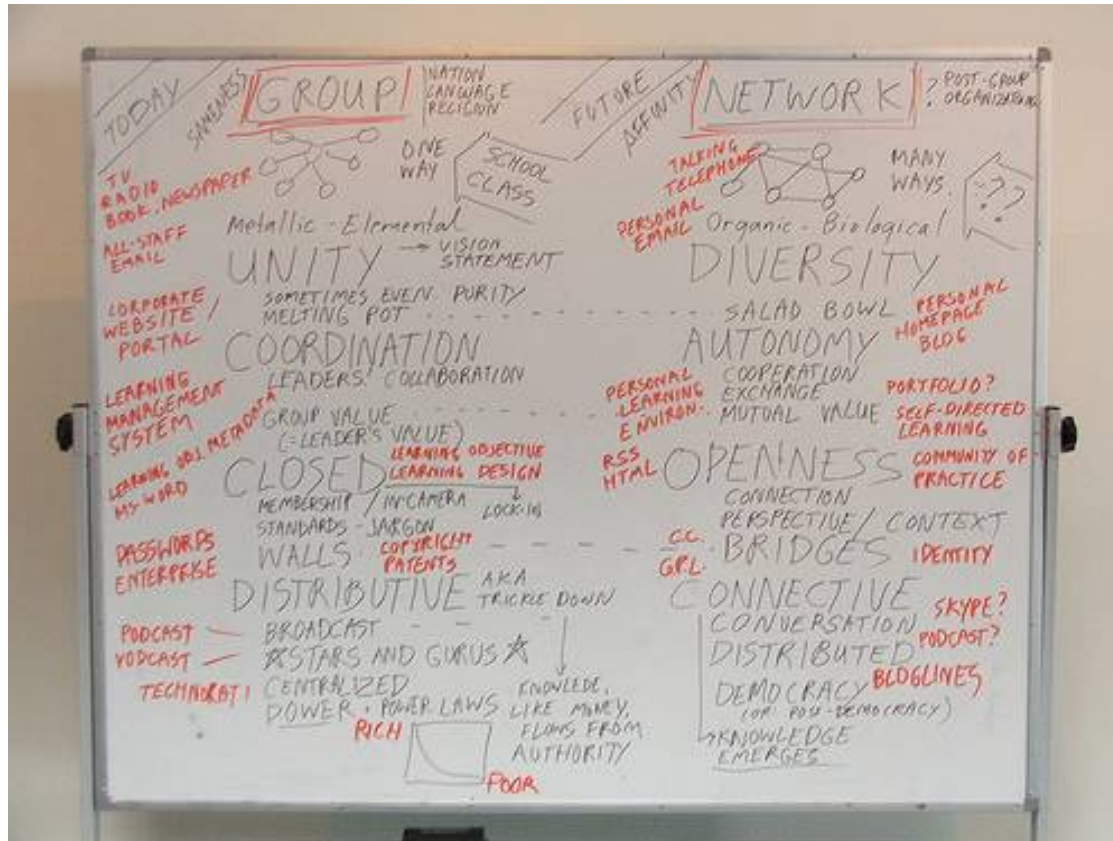 TODAY
SAMENESS
GROUP
NATION
LANGUAGE
RELIGION
ONE
WAY
SCHOOL
CLASS
TV
RADIO
BOOK, NEWSPAPER
ALL-STAFF
EMAIL
Metallic - Elemental
UNITY → VISION
STATEMENT
SOMETIMES EVEN PURITY
MELTING POT
CORPORATE
WEBSITE /
PORTAL
COORDINATION
LEADERS! COLLABORATION
LEARNING
MANAGEMENT
SYSTEM
GROUP VALUE
(=LEADER'S VALUE)
LEARNING OBJ. METADATA
MS-WORD
CLOSED
LEARNING OBJECTIVE
LEARNING DESIGN
LOCK-IN
MEMBERSHIP / IN-CAMERA
STANDARDS - JARGON
WALLS
COPYRIGHT
PATENTS
PASSWORDS
ENTERPRISE
DISTRIBUTIVE AKA
TRICKLE DOWN
PODCAST
VODCAST
BROADCAST
☆STARS AND GURUS☆
TECHNORATI
CENTRALIZED
POWER • POWER LAWS
RICH
POOR
KNOWLEDE,
LIKE MONEY,
FLOWS FROM
AUTHORITY
FUTURE
AFFINITY
NETWORK
? POST-GROUP
ORGANIZATION
TALKING
TELEPHONE
MANY
WAYS.
???
PERSONAL
EMAIL
Organic - Biological
DIVERSITY
SALAD BOWL
PERSONAL
HOMEPAGE
BLOG
AUTONOMY
COOPERATION
EXCHANGE
MUTUAL VALUE
PERSONAL
LEARNING
ENVIRON.
PORTFOLIO?
SELF-DIRECTED
LEARNING
RSS
HTML
OPENNESS
COMMUNITY OF
PRACTICE
CONNECTION
PERSPECTIVE / CONTEXT
C.C.
GPL.
BRIDGES
IDENTITY
CONNECTIVE
CONVERSATION
SKYPE?
DISTRIBUTED
PODCAST?
BLOGLINES
DEMOCRACY
(OR POST-DEMOCRACY)
→KNOWLEDGE
EMERGES